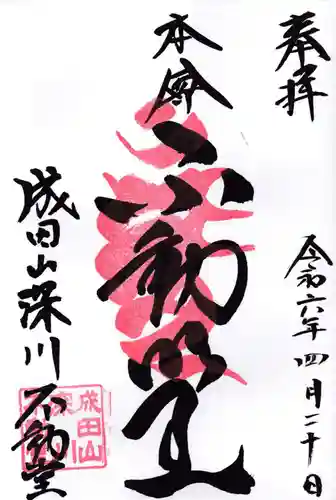 奉拝
令和六年四月二十日
本尊
不動明王
成田山深川不動堂
成田山